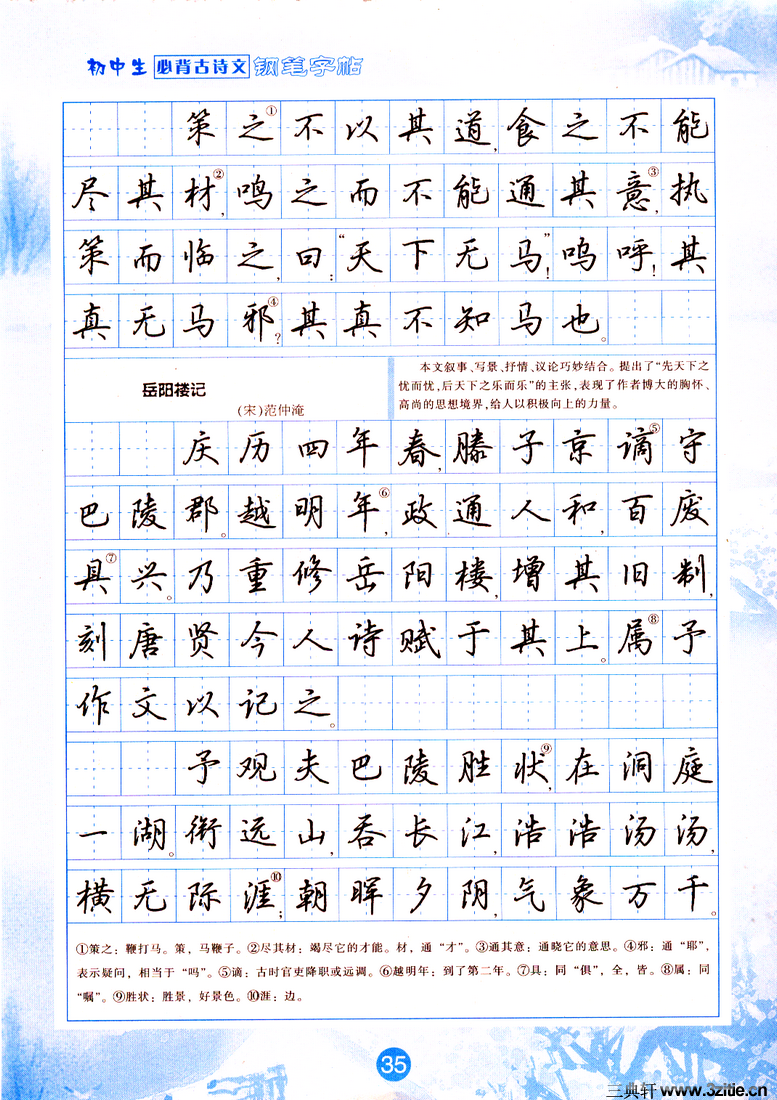 初中生 必背古诗文 钢笔字帖
策之①不以其道,食之不能
尽其材②,鸣之而不能通其意③,执
策而临之,曰:“天下无马”!呜呼!其
真无马邪④?其真不知马也。
岳阳楼记
(宋)范仲淹
本文叙事、写景、抒情、议论巧妙结合。提出了“先天下之
忧而忧,后天下之乐而乐”的主张,表现了作者博大的胸怀、
高尚的思想境界,给人以积极向上的力量。
庆历四年春,滕子京谪⑤守
巴陵郡。越明年⑥,政通人和,百废
具⑦兴。乃重修岳阳楼,增其旧制,
刻唐贤今人诗赋于其上。属⑧予
作文以记之。
予观夫巴陵胜状⑨,在洞庭
一湖。衔远山,吞长江,浩浩汤汤,
横无际涯⑩;朝晖夕阴,气象万千。
①策之:鞭打马。策,马鞭子。②尽其材:竭尽它的才能。材,通“才”。③通其意:通晓它的意思。④邪:通“耶”,
表示疑问,相当于“吗”。⑤谪:古时官吏降职或远调。⑥越明年:到了第二年。⑦具:同“俱”,全,皆。⑧属:同
“嘱”。⑨胜状:胜景,好景色。⑩涯:边。
35
三典轩 www.3zitie.cn